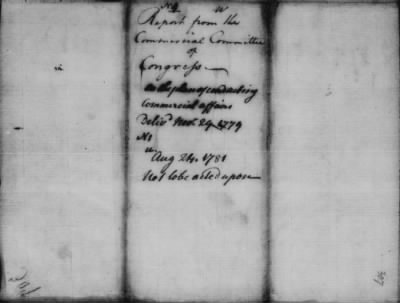 Report from the
Commercial Committee
of
Congress
on the plan of conducting
Commercial affairs
Deliv'd Nov. 29, 1779
No 1
Aug 24. 1781
Not to be acted upon